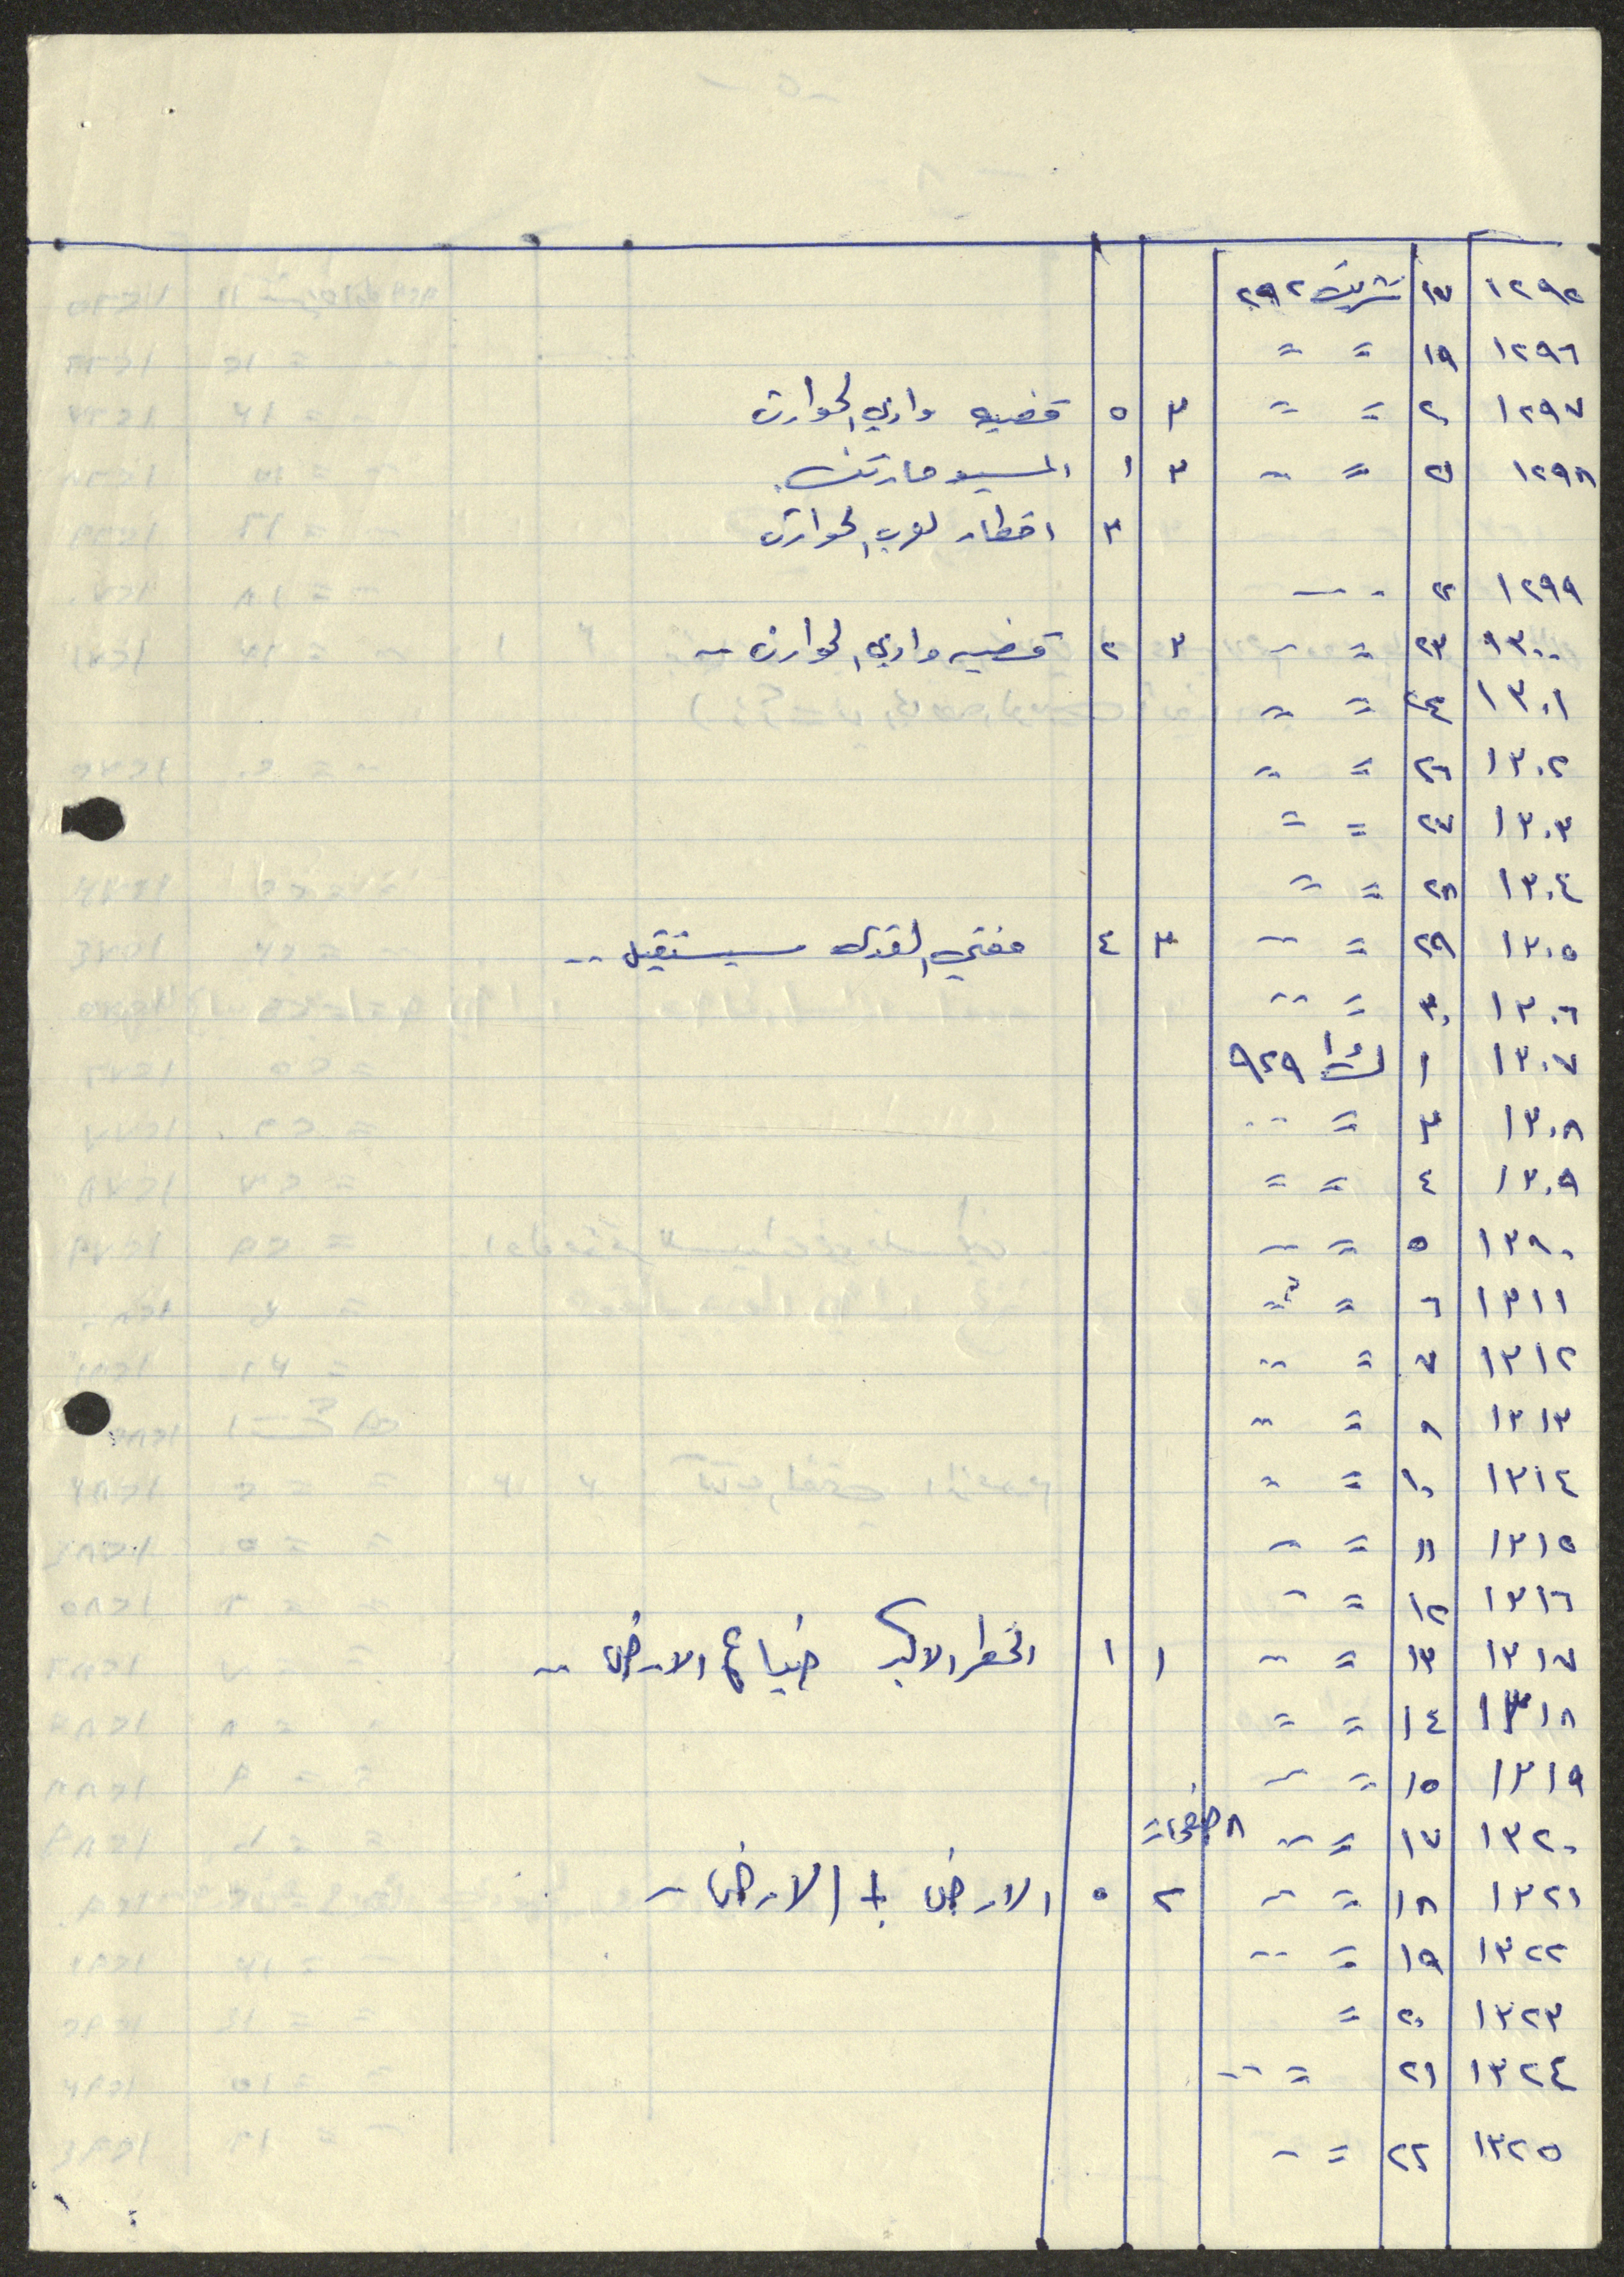 ١٢٩٥ ١٧ تشرين٢ ٩٢٩
١٢٩٦ ١٩ = =
١٢٩٧ ٢٠ = = ٣ ٥ قضيه وادي الحوارث
١٢٩٨ ٢١ = = ٣ ١ المسيو مارتن
٣ اخطار لعرب الحوارث
١٢٩٩ ٢٢
١٣٠٠ ٢٣ = = ٣ ٢ قضيه وادي الحوارث
١٣٠١ ٢٤ = =
١٣٠٢ ٢٦ = =
١٣٠٣ ٢٧ = =
١٣٠٤ ٢٨ = =
١٣٠٥ ٢٩ = = ٣ ٤ مفتي القدس سيستقيل ..
١٣٠٦ ٣٠ = =
١٣٠٧ ١ ك١ ٩٢٩
١٣٠٨ ٣ = =
١٣٠٩ ٤ = =
١٣١٠ ٥ = =
١٣١١ ٦ = =
١٣١٢ ٧ = =
١٣١٣ ٩ = =
١٣١٤ ١٠ = =
١٣١٥ ١١ = =
١٣١٦ ١٢ = =
١٣١٧ ١٣ = = ١ ١ الخطر الاكبر ضياع الارض ..
١٣١٨ ١٤ = =
١٣١٩ ١٥ = =
١٣٢٠ ١٧ = = ٨ صفحات
١٣٢١ ١٨ = = ٢ ٥ الارض + الارض
١٣٢٢ ١٩ = =
١٣٢٣ ٢٠ =
١٣٢٤ ٢١ = =
١٣٢٥ ٢٢ = =